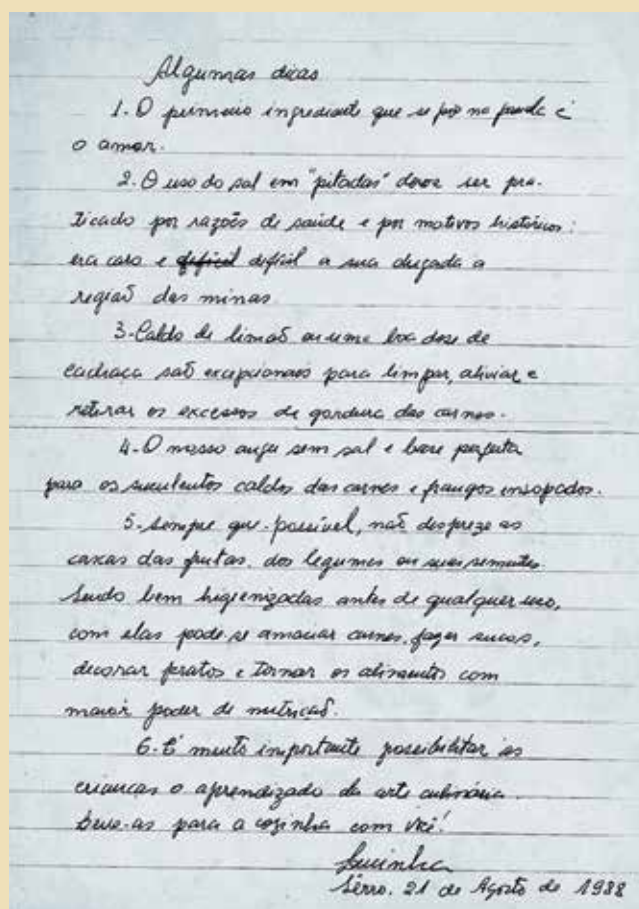 Algumas dicas
1. O primeiro ingrediente que se põe na panela é
o amor.
2. O uso do sal em "pitadas" deve ser pra-
ticado por razões de saúde e por motivos históricos:
era caro e difícil a sua chegada a
região das minas
3. Caldo de limão ou uma boa dose de
cachaça são excepcionais para limpar, aliviar e
retirar os excessos de gordura das carnes.
4. O nosso angu sem sal é base perfeita
para os suculentos caldos das carnes e frangos ensopados.
5. Sempre que possível, não despreze as
cascas das frutas, dos legumes ou suas sementes.
Sendo bem higienizadas antes de qualquer uso,
com elas pode-se amaciar carnes, fazer sucos,
decorar pratos e tornar os alimentos com
maior poder de nutrição.
6. É muito importante possibilitar às
crianças o aprendizado da arte culinária.
Leve-as para a cozinha com você!
Lucinha
Serro, 21 de Agosto de 1988